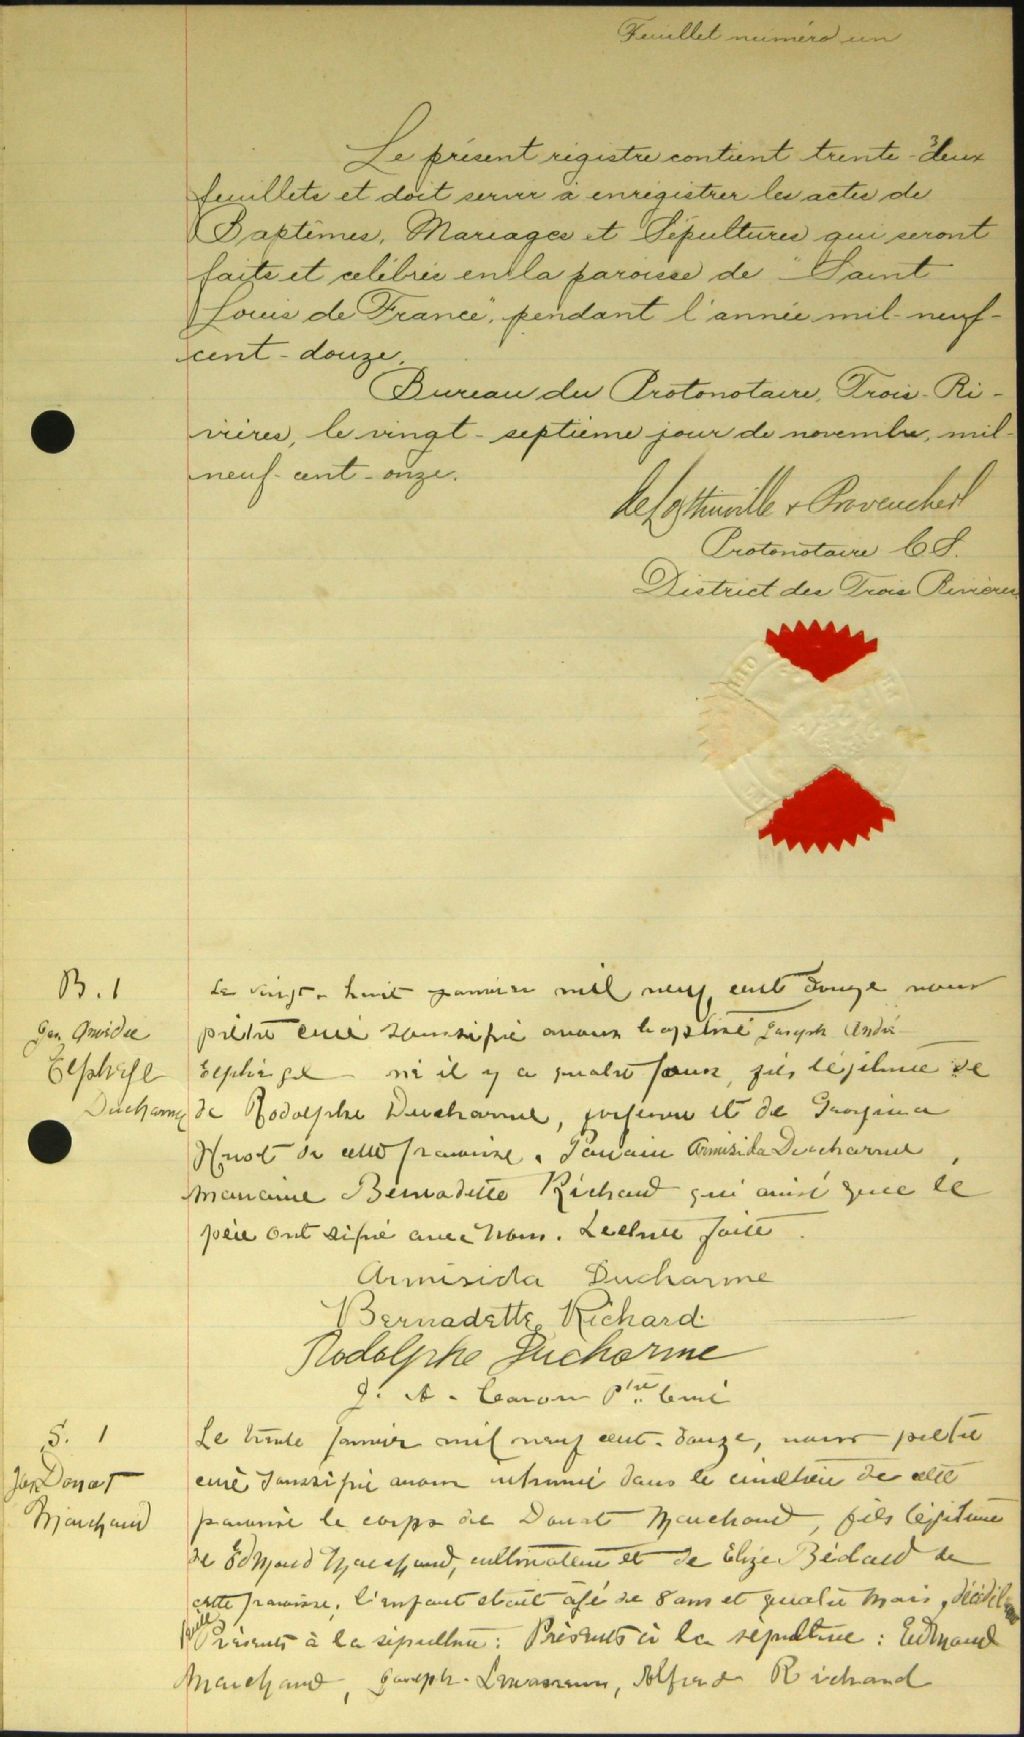 Feuillet numéro un
Le présent régistre contient trente-deux
feuillets et doit servir à enrégistrer les actes de
Baptêmes, Mariages et Sépultures qui seront
faits et célébrés en la paroisse de "Saint
Louis de France", pendant l'année mil-neuf-
cent-douze.
Bureau du Protonotaire, Trois-Ri-
vières, le vingt-septième jour de novembre, mil-
neuf-cent-onze.
& Provencher
Protonotaire C.S.
District des Trois Rivières
B. 1
Le vingt-huit janvier mil neuf cent douze nous
prêtre curé soussigné avons baptisé Joseph André
Elphège né il y a quatre jours, fils légitime de
Elphège
Ducharme
de Rodolphe Ducharme, et de Georgina
de cette paroisse. Parrain Armisida Ducharme,
marraine Bernadette Richard qui ainsi que le
père ont signé avec nous. Lecture faite.
Armisida Ducharme
Bernadette Richard.
Rodolphe Ducharme
J. A. Caron Ptre Curé
S. 1
Le trente janvier mil neuf cent-douze, nous prêtre
Jos Donat
Marchand
curé soussigné avons inhumé dans le cimetière de cette
paroisse le corps de Donat Marchand, fils légitime
de Edmond Marchand, cultivateur et de Elize Bédard de
cette paroisse. l'enfant était âgé de 8 ans et quatre mois, décédé
Présents à la sépulture: Présents à la sépulture: Edmond
Marchand, Joseph Levasseur, Alfred Richard